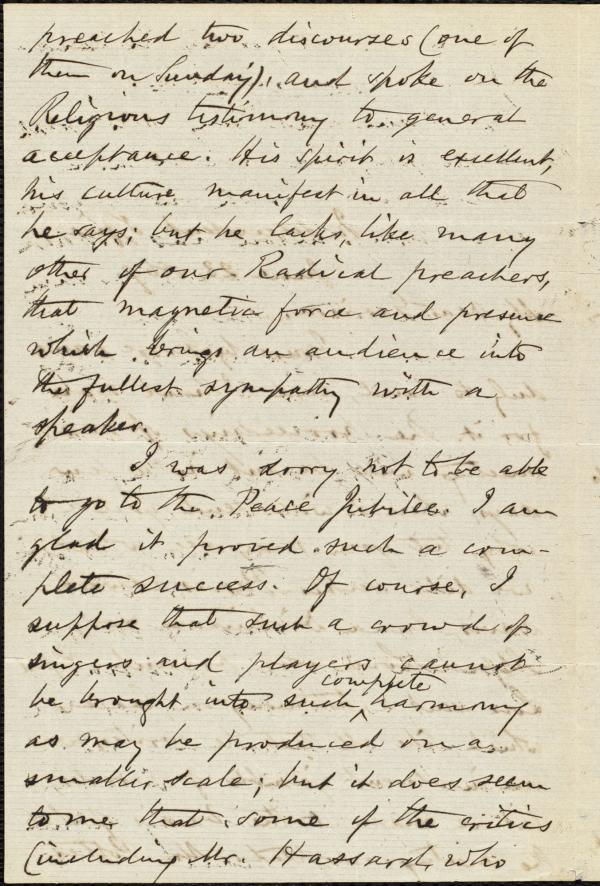 preached two discourses (one of
them on Sunday), and spoke on the
Religious testimony to general
acceptance. His spirit is excellent,
his culture manifest in all that
he says; but he lacks, like many
other of our Radical preachers,
that magnetic force and presence
which brings an audience into
the fullest sympathy with a
speaker.
I was sorry not to be able
to go to the Peace Jubilee. I am
glad it proved such a com-
plete success. Of course, I
suppose that such a crowd of
singers and players cannot
be brought into such complete harmony
as may be produced on a
smaller scale; but it does seem
to me that some of the critics
(including Mr. Hassard, who